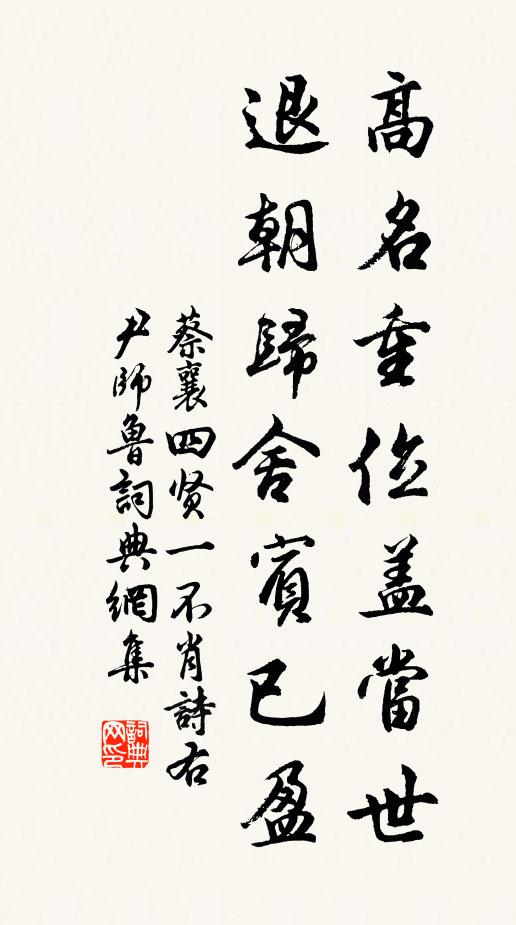 高名重位盖當世
退朝歸舍賓已盈
蔡襄四贤一不肖詩右
尹師魯詞典網集
詞典
网印